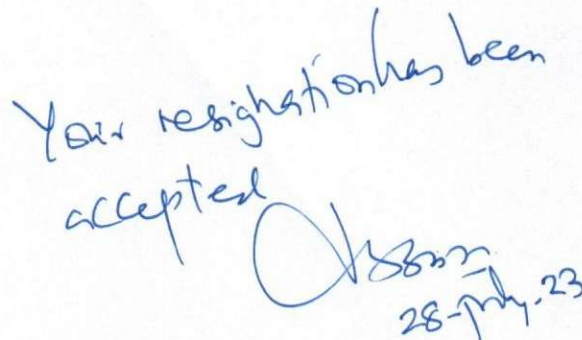 Your resignation has been
accepted
28-July-23